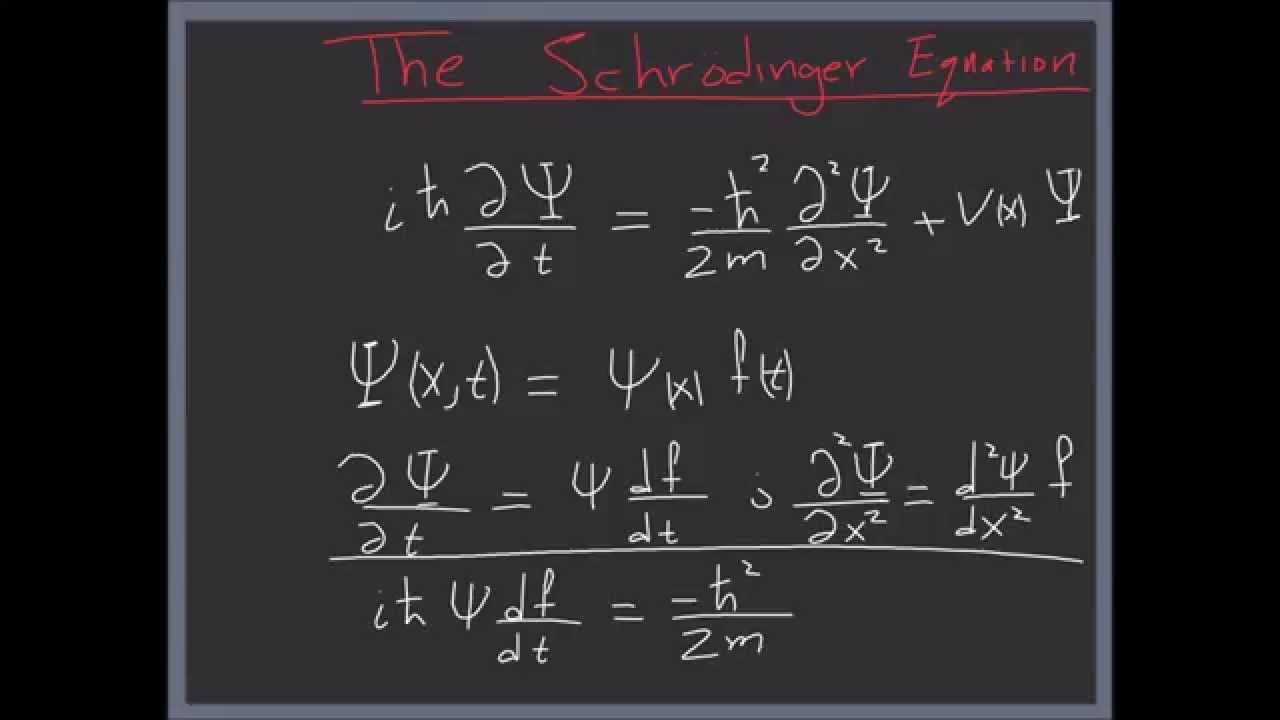 The Schrödinger Equation
iℏ ∂Ψ/∂t = -ℏ²/2m ∂²Ψ/∂x² + V(x) Ψ
Ψ(x,t) = ψ(x) f(t)
∂Ψ/∂t = ψ df/dt ; ∂²Ψ/∂x² = d²ψ/dx² f
iℏ ψ df/dt = -ℏ²/2m